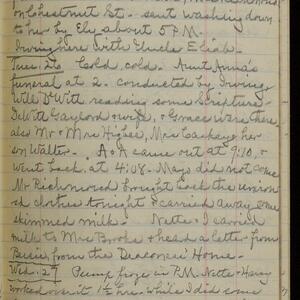 on Chestnut St. - sent washing down
to her by Ely about 5 P.M.
Irving here with Uncle Elijah.
Tues. 26 Cold, cold. Aunt Anna's
funeral at 2. conducted by Irving,
Will DeWitt reading some Scripture.
DeWitt Gaylord & wife, & Grace were there
also Mr & Mrs Higbee, Mrs Caskey & her
son Walter. A & A came out at 9:10, &
went back at 4:08. Mayo did not come
Mr Richmond brought back the
clothes tonight & carried away some
skimmed milk. Nettie & I carried
milk to Mrs Brooks & had a letter from
Bessie from the Deaconess' Home -
Wed. 27 Pump froze in P.M. Nettie & Harry
worked over it 1½ hrs. while I did some